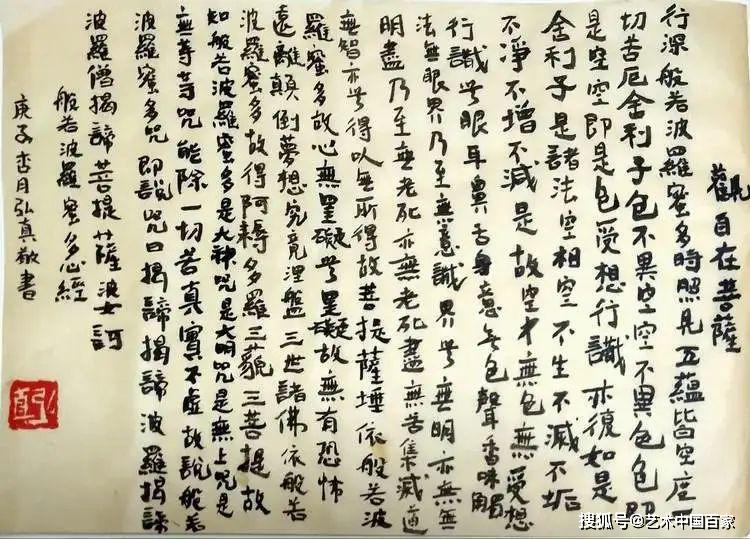 觀自在菩薩
行深般若波羅蜜多時照見五蘊皆空度一
切苦厄舍利子色不異空空不異色色即
是空空即是色受想行識亦復如是
舍利子是諸法空相空不生不滅不垢
不淨不增不減是故空中無色無受想
行識无眼耳鼻舌身意无色聲香味觸
法無眼界乃至無意識界无無明亦無無
明盡乃至無老死亦無老死盡無苦集滅道
無智亦无得以無所得故菩提薩埵依般若波
羅蜜多故心無罣礙无罣礙故無有恐怖
遠離顛倒夢想究竟涅盤三世諸佛依般若
波羅蜜多故得阿耨多羅三藐三菩提故
知般若波羅蜜多是大神咒是大明咒是無上咒是
無等等咒能除一切苦真實不虛故說般若
波羅蜜多咒即說咒曰揭諦揭諦波羅揭諦
波羅僧揭諦菩提薩婆訶
般若波羅蜜多心經
庚子杏月弘真敬書
弘真
搜狐号@艺术中国百家